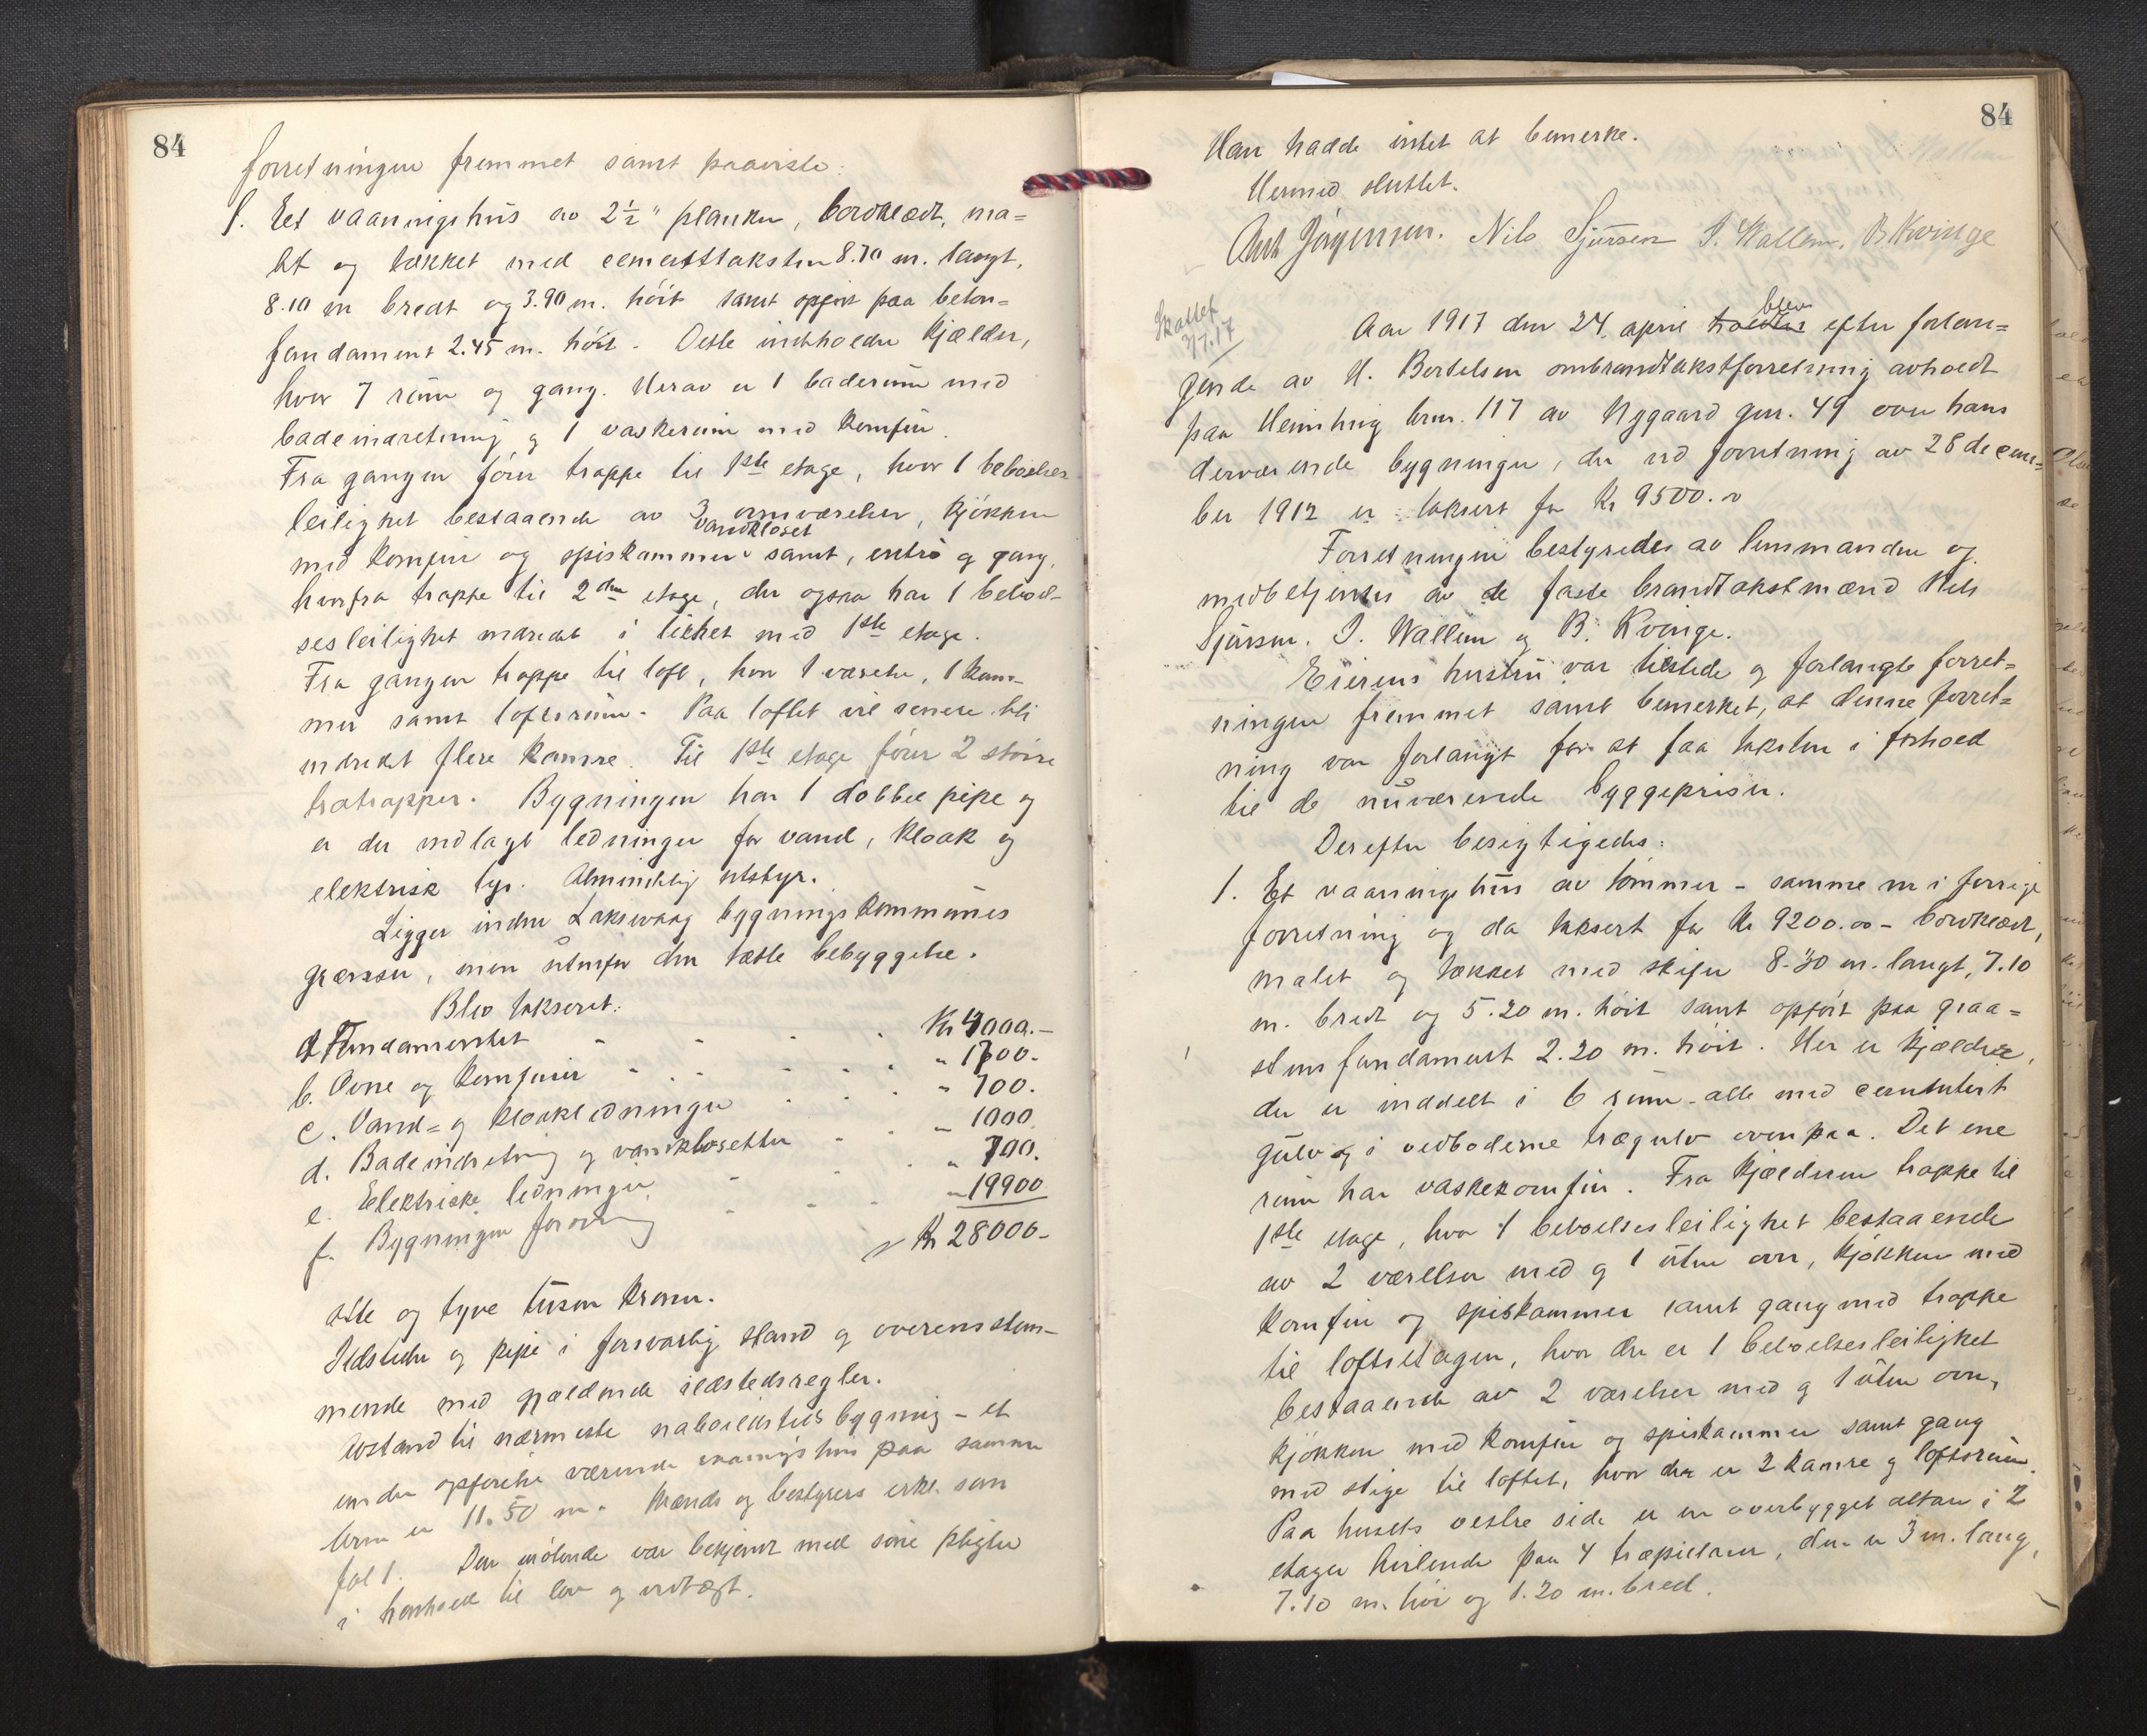 84
forretningen fremmet samt paaviste:
1. Et vaaningshus av 2½" planker, bordklædt, ma=
let og tækket med cementtaksten 8.70 m. langt,
8.10 m bredt og 3.90 m. høit samt opført paa beton=
fundament 2.45 m. høit. Dette indeholder kjælder,
hvor 7 rum og gang. Herav er 1 baderum med
badeindretning og 1 vaskerum med komfur.
Fra gangen fører trappe til 1ste etage, hvor 1 beboelses
leilighet bestaaende av 3 ovnsværelser, kjøkken
vandkloset
med komfur og spiskammer samt, entré og gang,
hvorfra trappe til 2den etage, der ogsaa har 1 beboel-
sesleilighet indredet i likhet med 1ste etage.
Fra gangen trappe til loft, hvor 1 værelse, 1 kam-
mer samt loftsrum. Paa loftet vil senere bli
indredet flere kamre. Til 1ste etage fører 2 større
trætrapper. Bygningen har 1 dobbel pipe og
er der indlagt ledninger for vand, kloak og
elektrisk lys. Almindelig utstyr.
Ligger inden Laksevaag bygningskommunes
grænser, men utenfor den tætte bebyggelse.
Blev taksert:
a. Fundamentet - - - Kr 4000.-
b. Ovne og komfurer - - - " 1700.-
c. Vand= og kloakledninger - - " 700.
d. Badeindretning og vandklosetter - - " 1000
e. Elektriske ledninger - - " 700.
f. Bygningen forøvrig - - " 19900
Kr 28000-
otte og tyve tusen kroner.
Ildsteder og pipe i forsvarlig stand og overensstem-
mende med gjældende ildstedsregler.
Avstand til nærmeste naboildstedsbygning - et
under opførelse værende vaaningshus paa samme
brm er 11.50 m. Mænds og bestyrers erkl. som
fol 1. Den møtende var bekjent med sine pligter
i henhold til lov og vedtægt.
84
Han hadde intet at bemerke.
Hermed sluttet.
Ant Jørgensen. Nils Sjursen J. Wallem. B Kvinge
Aar 1917 den 24. april blev efter forlan=
gende av H. Bertelsen ombrandtakstforretning avholdt
paa Heimhug brn. 117 av Nygaard gnr. 49 over hans
derværende bygninger, der ved forretning av 28 decem=
ber 1912 er taksert for Kr 9500.00
Forretningen bestyredes av lensmanden og
medbetjentes av de faste brandtakstmænd Nils
Sjursen. J. Wallem og B. Kvinge.
Eierens hustru var tilstede og forlangte forret=
ningen fremmet samt bemerket, at denne forret=
ning var forlangt for at faa taksten i forhold
til de nuværende byggepriser.
Derefter besigtigedes:
1. Et vaaningshus av tømmer - samme som i forrige
forretning og da taksert for Kr 9200.00 - bordklædt,
malet og tækket med skifer 8.30 m. langt, 7.10
m. bredt og 5.20 m. høit samt opført paa graa=
stensfundament 2.20 m. høit. Her er kjælder,
der er inddelt i 6 rum - alle med cementert
gulv og i vedboderne trægulv ovenpaa. Det ene
rum har vaskekomfur. Fra kjælderen trappe til
1ste etage, hvor 1 beboelsesleilighet bestaaende
av 2 værelser med og 1 uten ovn, kjøkken med
komfur og spiskammer samt gang med trappe
til loftsetagen, hvor der er 1 beboelsesleilighet
bestaaende av 2 værelser med og 1 uten ovn,
kjøkken med komfur og spiskammer samt gang
med stige til loftet, hvor der er 2 kamre og loftsrum.
Paa husets vestre side er en overbygget altan i 2
etager hvilende paa 4 træpillarer, den er 3 m. lang,
7.10 m. høi og 1.20 m. bred.